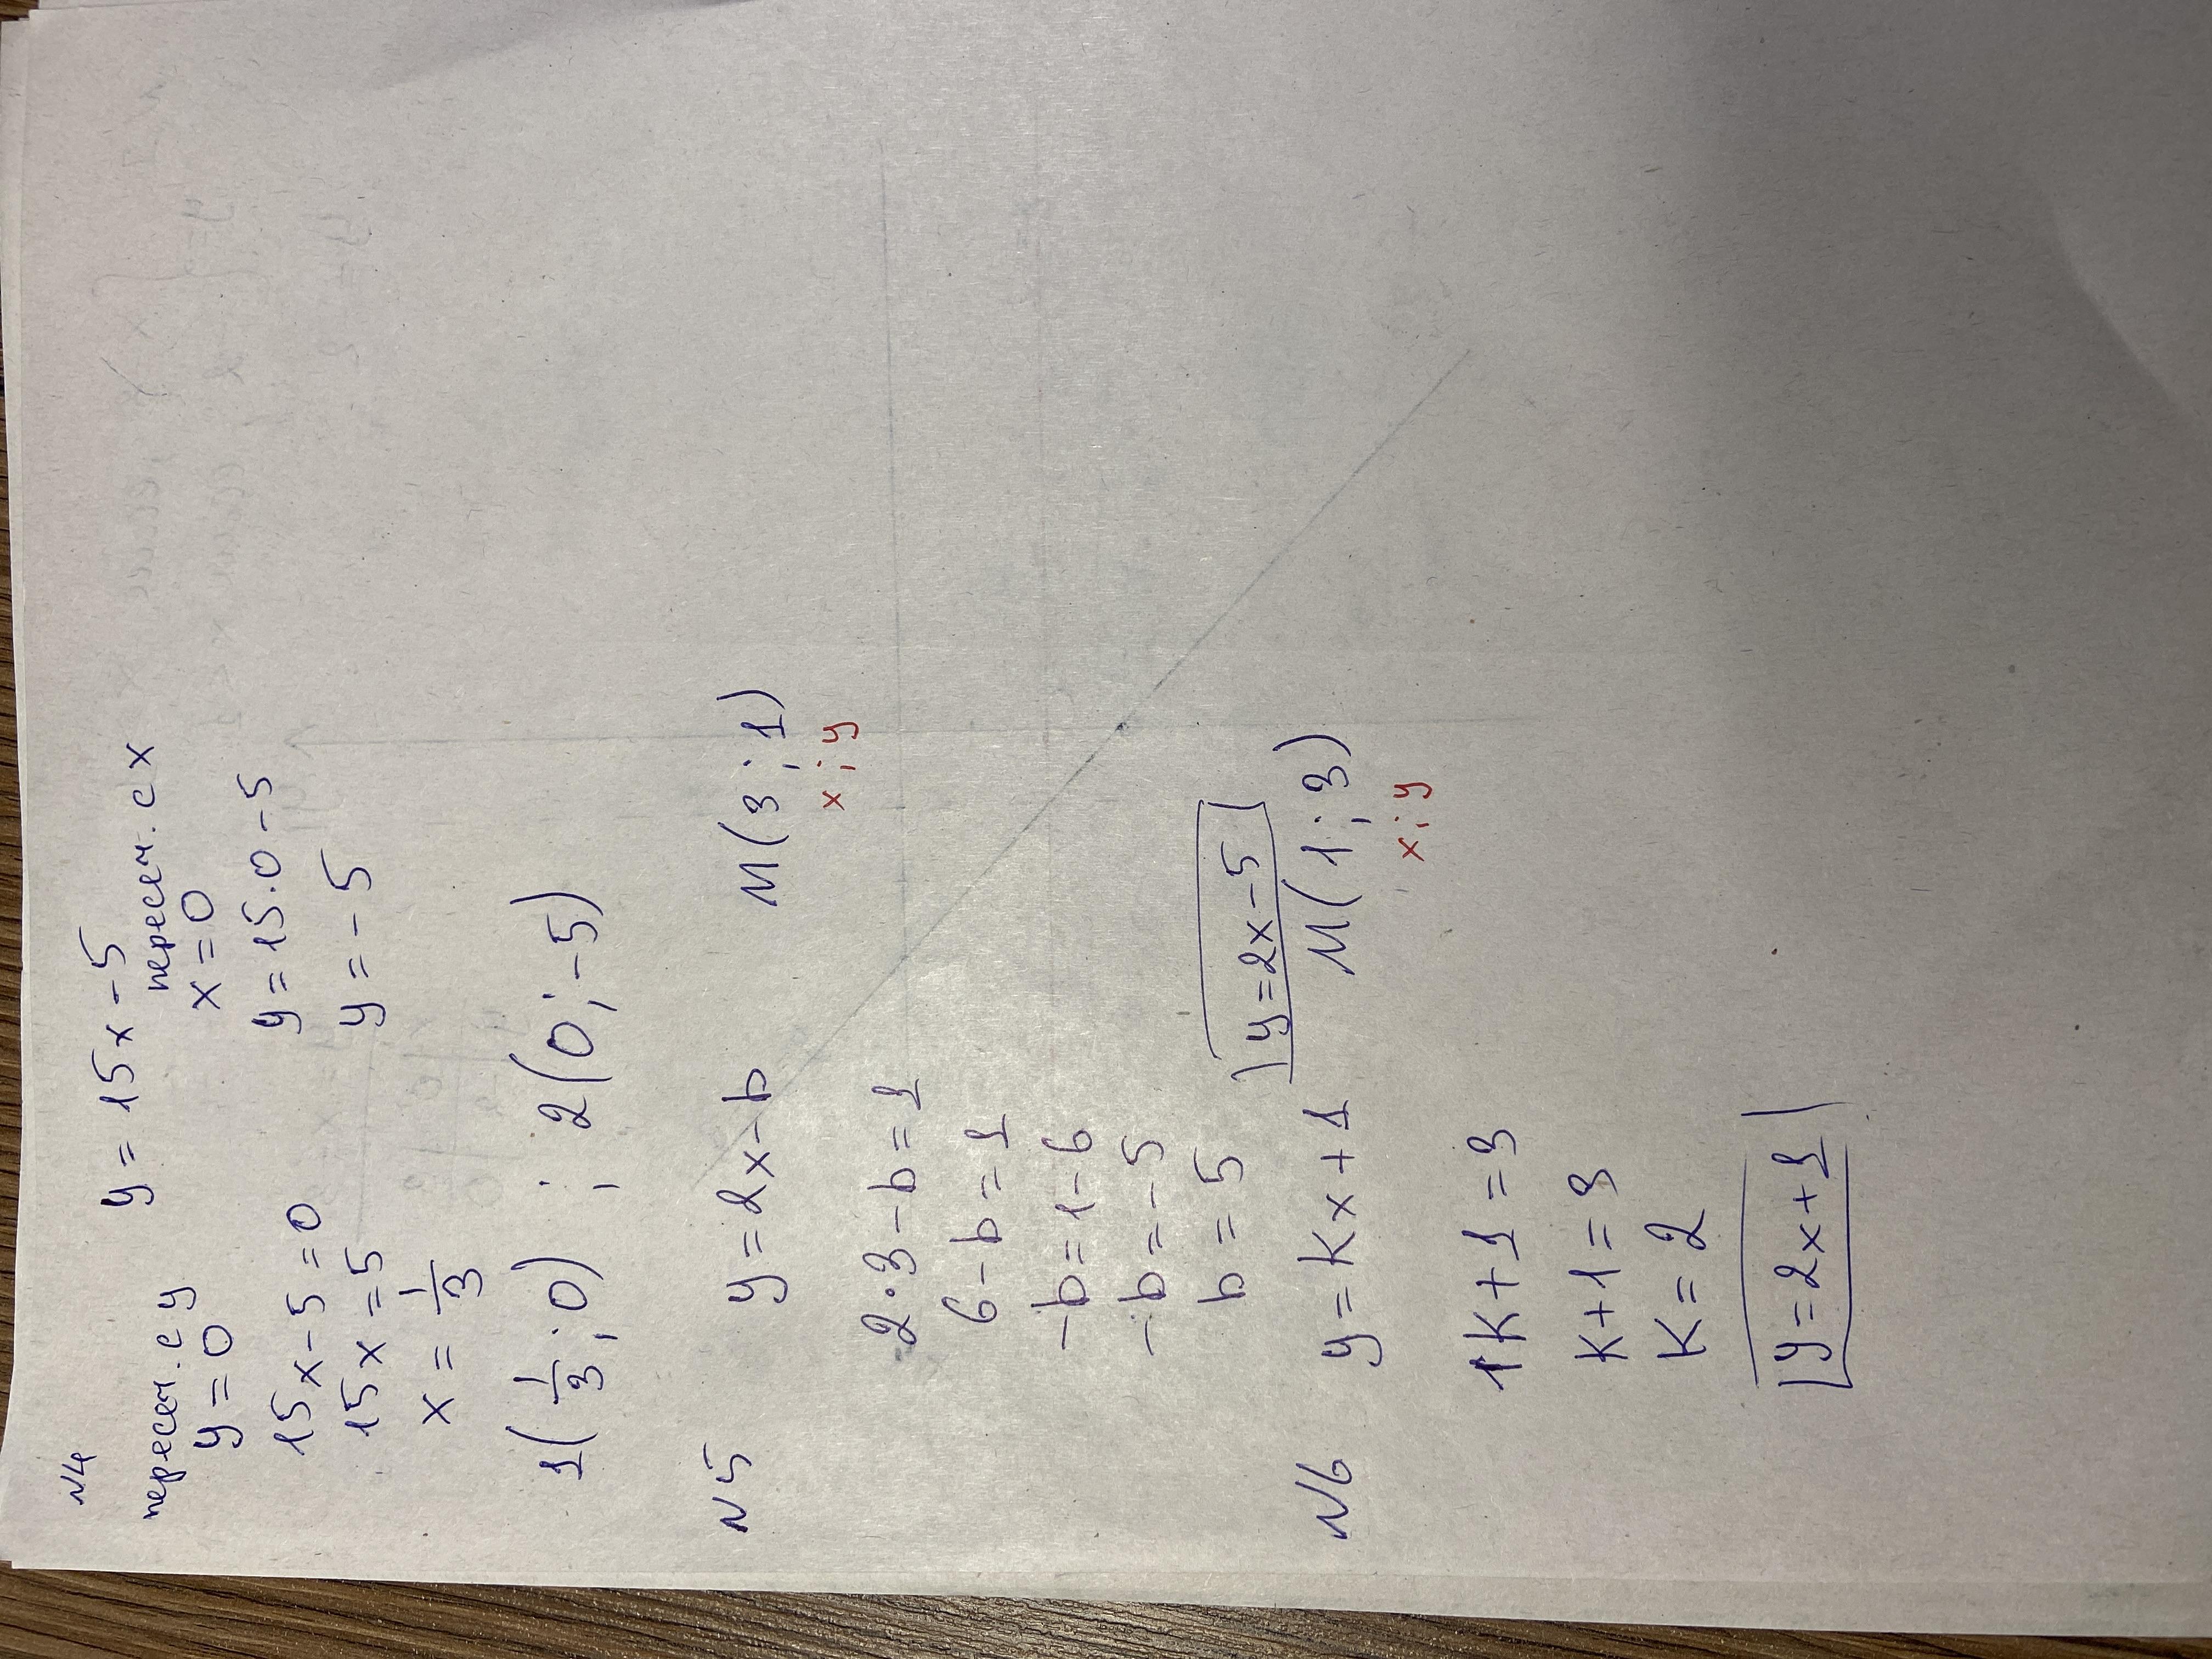 №4
y = 15x - 5
пересеч. с y
пересеч. с x
y = 0
x = 0
15x - 5 = 0
y = 15·0 - 5
15x = 5
y = -5
x = 1/3
1(1/3 ; 0) ; 2(0 ; -5)
№5
y = 2x - b
M(3 ; 1)
x ; y
2·3 - b = 1
6 - b = 1
-b = 1 - 6
-b = -5
b = 5
y = 2x - 5
№6
y = kx + 1
M(1 ; 3)
x ; y
1k + 1 = 3
k + 1 = 3
k = 2
y = 2x + 1